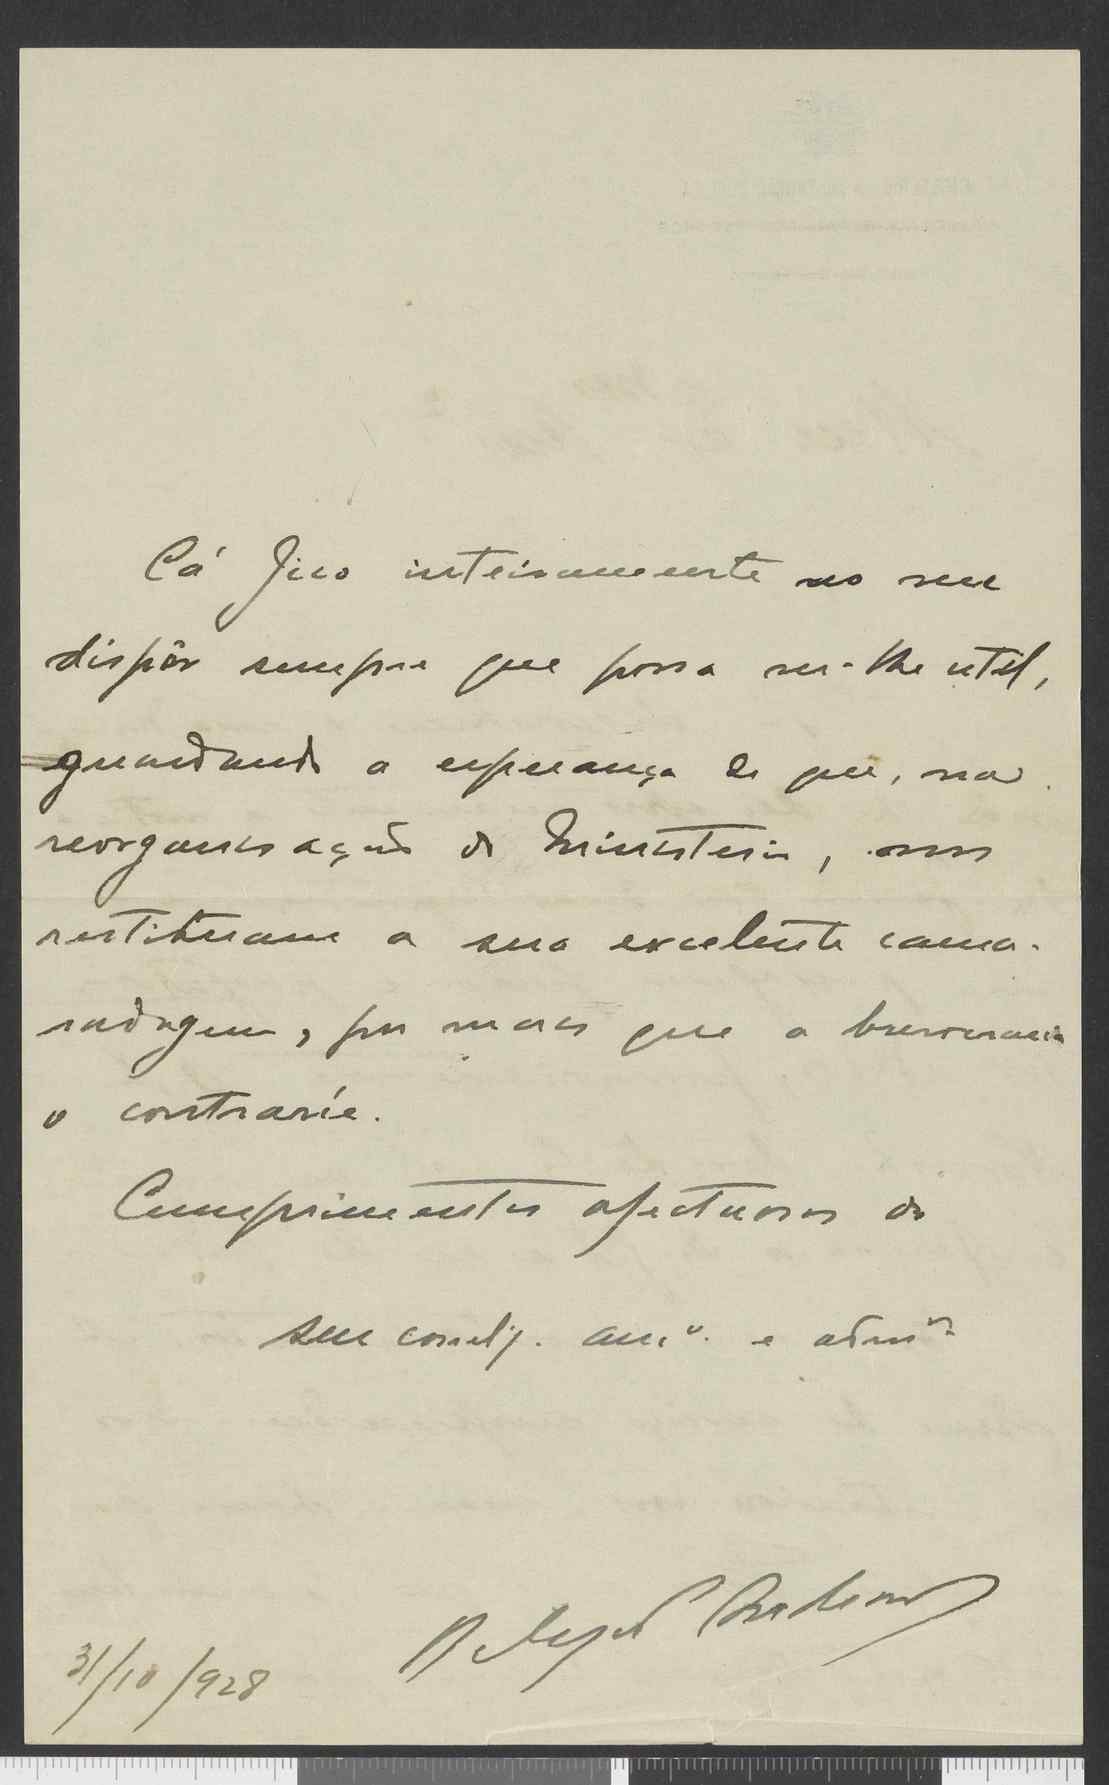 Cá fico inteiramente ao seu
dispôr sempre que possa ser-lhe util,
guardando a esperança de que, na
reorganisação do Ministerio, nos
restituam a sua excelente cama-
radagem, por mais que a burocracia
o contrarie.
Cumprimentos afectuosos do
seu coleg. am.º e adm.ºr
31/10/928